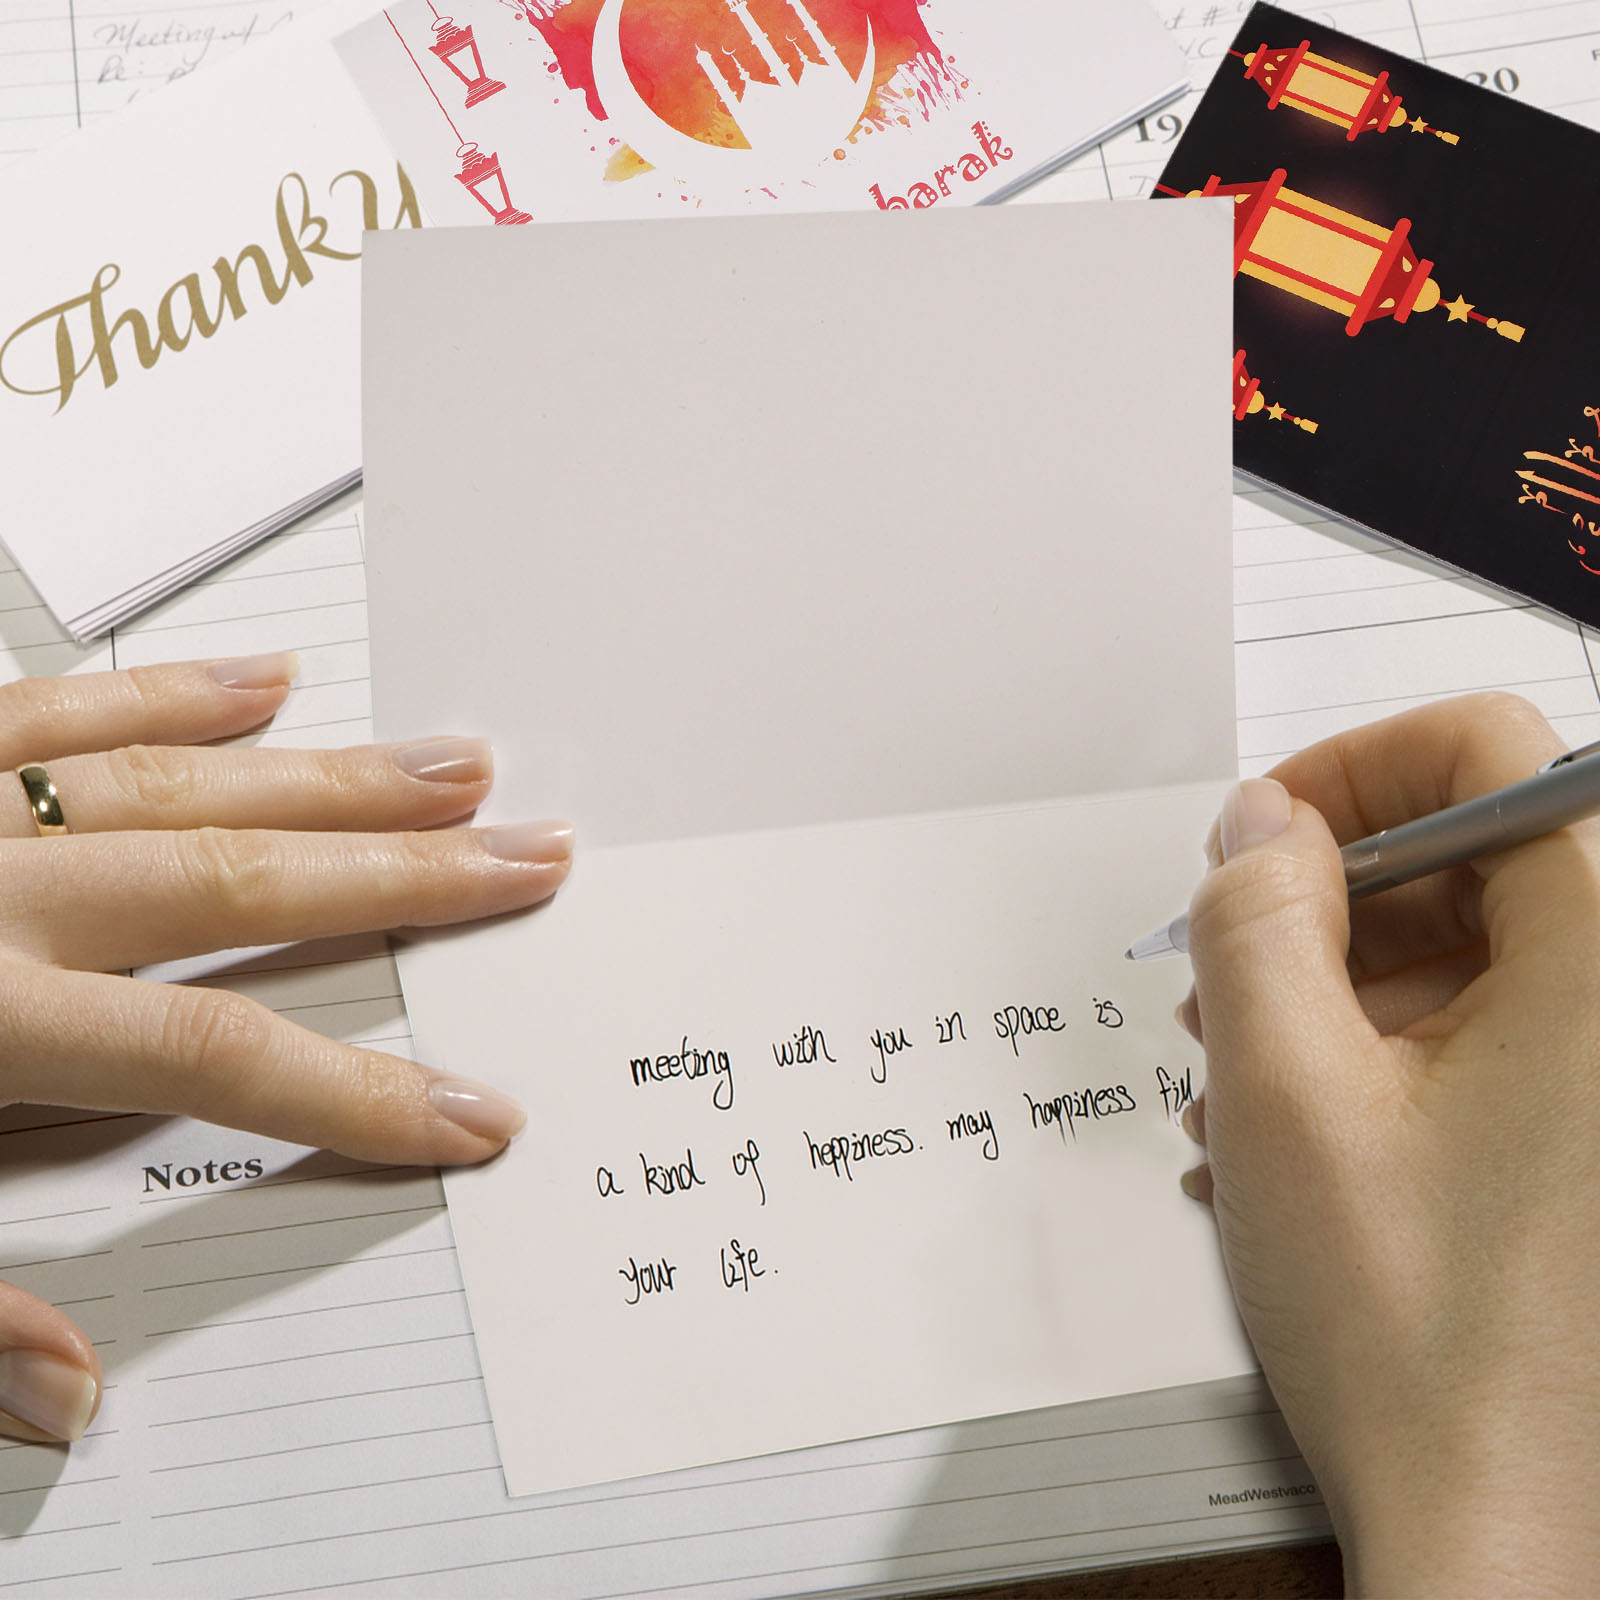 Meeting w/
Re:
# 
19
20
Thank Y
barak
meeting with you in space is
a kind of heppiness. may happiness fill
your life.
Notes
MeadWestvaco